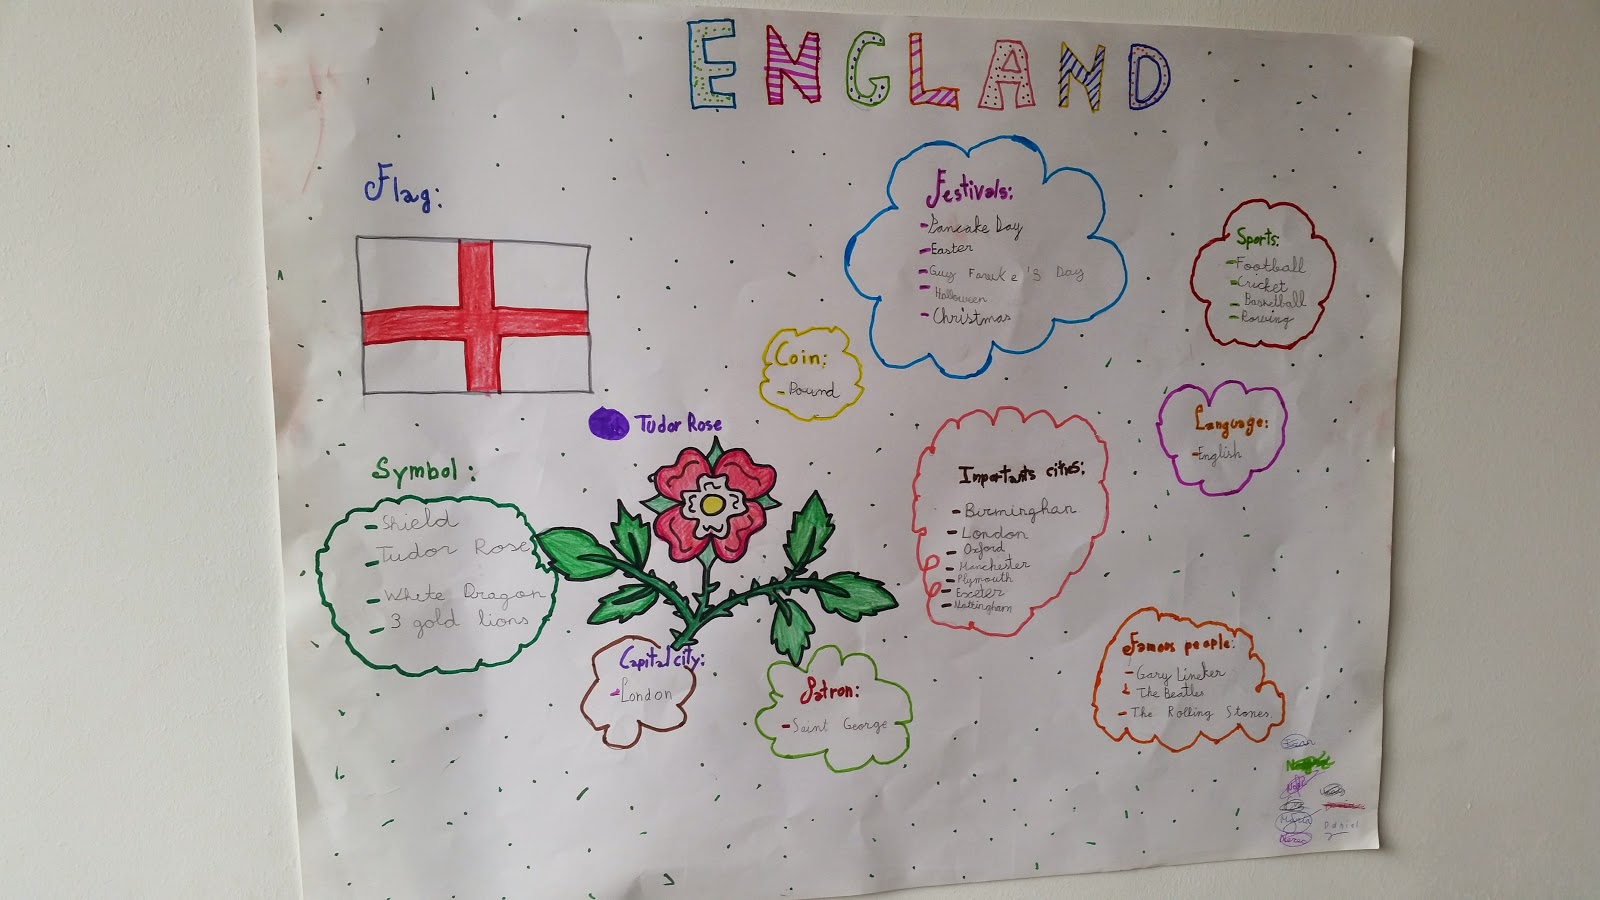 ENGLAND
Flag:
Festivals:
-Pancake Day
-Easter
-Guy Fawke's Day
-Halloween
-Christmas
Sports:
-Football
-Cricket
-Basketball
-Rowing
Coin:
-Pound
Language:
-English
Tudor Rose
Symbol:
-Shield
-Tudor Rose
-White Dragon
-3 gold lions
Importants cities:
-Birminghan
-London
-Oxford
-Manchester
-Plymouth
-Exceter
-Nottingham
Capital city:
-London
Patron:
-Saint George
Famous people:
-Gary Lineker
-The Beatles
-The Rolling Stones.
María
Daniel